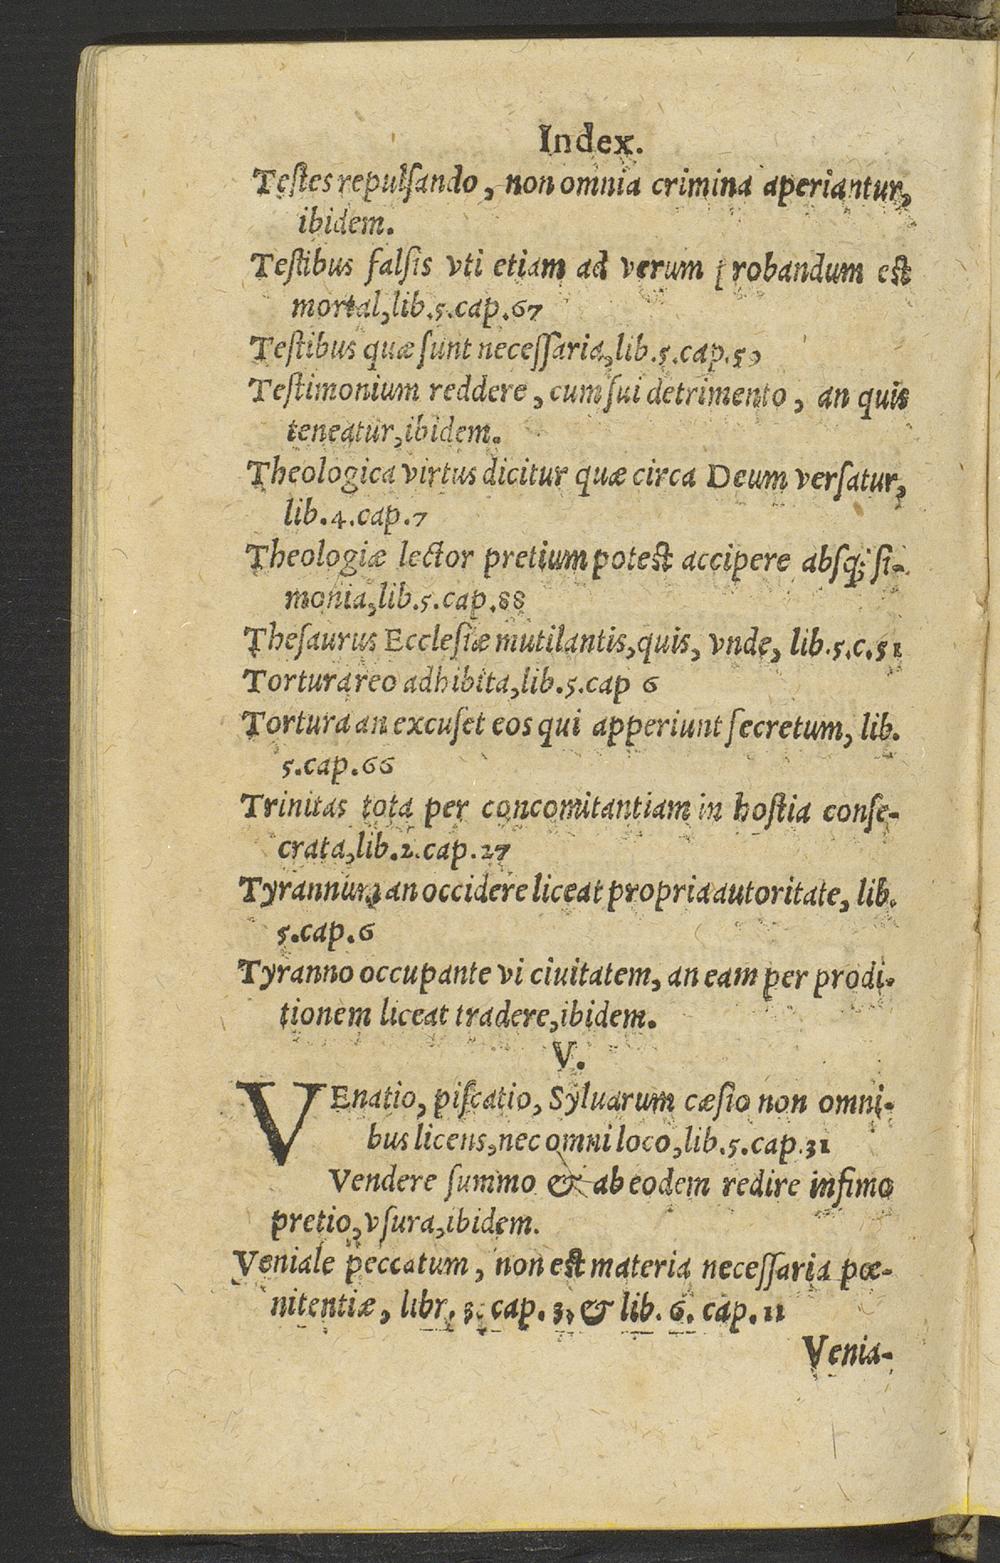 Index.
Teſtes repulſando, non omnia crimina aperiantur,
ibidem.
Teſtibus falſis vti etiam ad verum probandum eſt
mortal, lib.5.cap.67
Teſtibus quæ ſunt neceſſaria, lib.5.cap.59
Teſtimonium reddere, cum ſui detrimento, an quis
teneatur, ibidem.
Theologica virtus dicitur quæ circa Deum verſatur,
lib.4.cap.7
Theologiæ lector pretium poteſt accipere abſq; ſi-
monia, lib.5.cap.88
Theſaurus Eccleſiæ mutilantis, quis, vnde, lib.5.c.51
Tortura reo adhibita, lib.5.cap 6
Tortura an excuſet eos qui apperiunt ſecretum, lib.
5.cap.66
Trinitas tota per concomitantiam in hoſtia conſe-
crata, lib.2.cap.27
Tyrannum an occidere liceat propria autoritate, lib.
5.cap.6
Tyranno occupante vi ciuitatem, an eam per prodi-
tionem liceat tradere, ibidem.
V.
VEnatio, piſcatio, Syluarum cæſio non omni-
bus licens, nec omni loco, lib.5.cap.31
Vendere ſummo & ab eodem redire infimo
pretio, vſura, ibidem.
Veniale peccatum, non eſt materia neceſſaria pœ-
nitentiæ, libr. 3. cap. 3, & lib. 6. cap. 11
Venia-